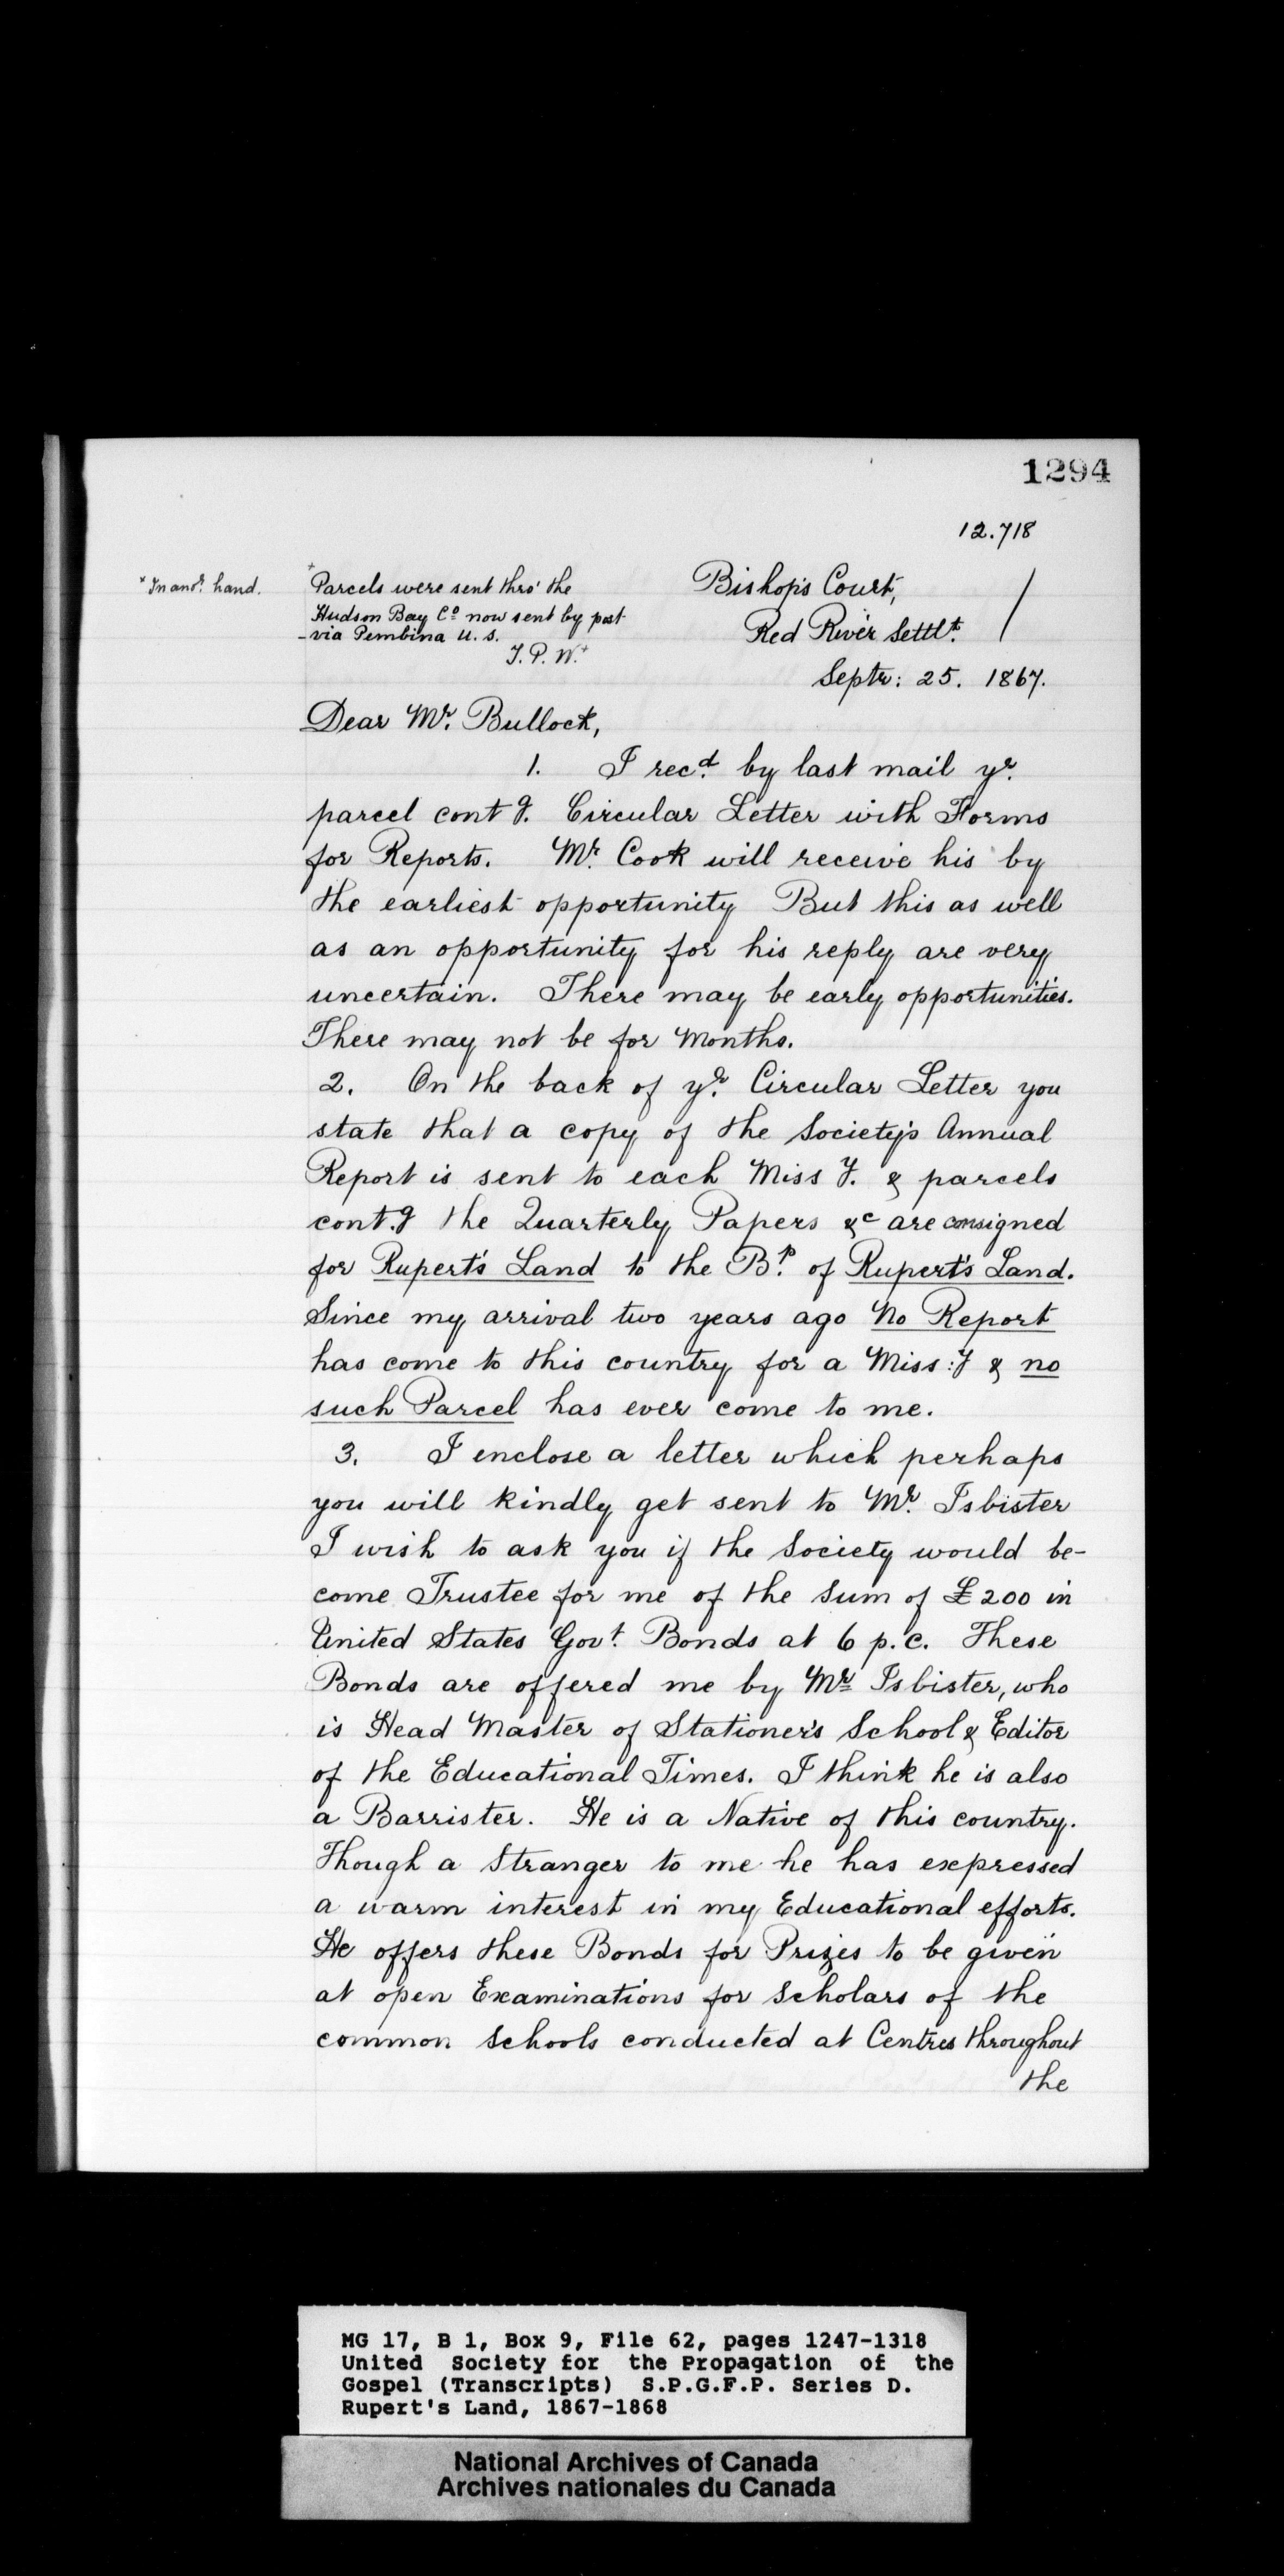 1294
12.718
* In anor. hand.
+ Parcels were sent thro' the
Hudson Bay Co now sent by post
- via Pembina U. S.
J. P. W.+
Bishop's Court,
Red River Settlt.
Septr: 25. 1867.
Dear Mr. Bullock,
1. I recd. by last mail yr.
parcel contg. Circular Letter with Forms
for Reports. Mr. Cook will receive his by
the earliest opportunity But this as well
as an opportunity for his reply are very
uncertain. There may be early opportunities.
There may not be for months.
2. On the back of yr. Circular Letter you
state that a copy of the Society's Annual
Report is sent to each Miss y. & parcels
cont.g the Quarterly Papers &c are consigned
for Rupert's Land to the Bp. of Rupert's Land.
Since my arrival two years ago No Report
has come to this country for a Miss:y & no
such Parcel has ever come to me.
3. I enclose a letter which perhaps
you will kindly get sent to Mr. Isbister
I wish to ask you if the Society would be-
come Trustee for me of the sum of £200 in
United States Govt. Bonds at 6 p.c. These
Bonds are offered me by Mr Isbister, who
is Head Master of Stationer's School & Editor
of the Educational Times. I think he is also
a Barrister. He is a Native of this country.
Though a stranger to me he has expressed
a warm interest in my Educational efforts.
He offers these Bonds for Prizes to be given
at open Examinations for Scholars of the
common schools conducted at Centres throughout
the
MG 17, B 1, Box 9, File 62, pages 1247-1318
United Society for the Propagation of the
Gospel (Transcripts) S.P.G.F.P. Series D.
Rupert's Land, 1867-1868
National Archives of Canada
Archives nationales du Canada